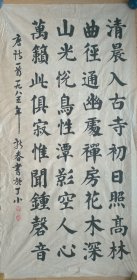 清晨入古寺初日照高林
曲徑通幽處禪房花木深
山光悅鳥性潭影空人心
萬籟此俱寂惟聞鐘磬音
唐詩一首一九八五年新春書於丁小